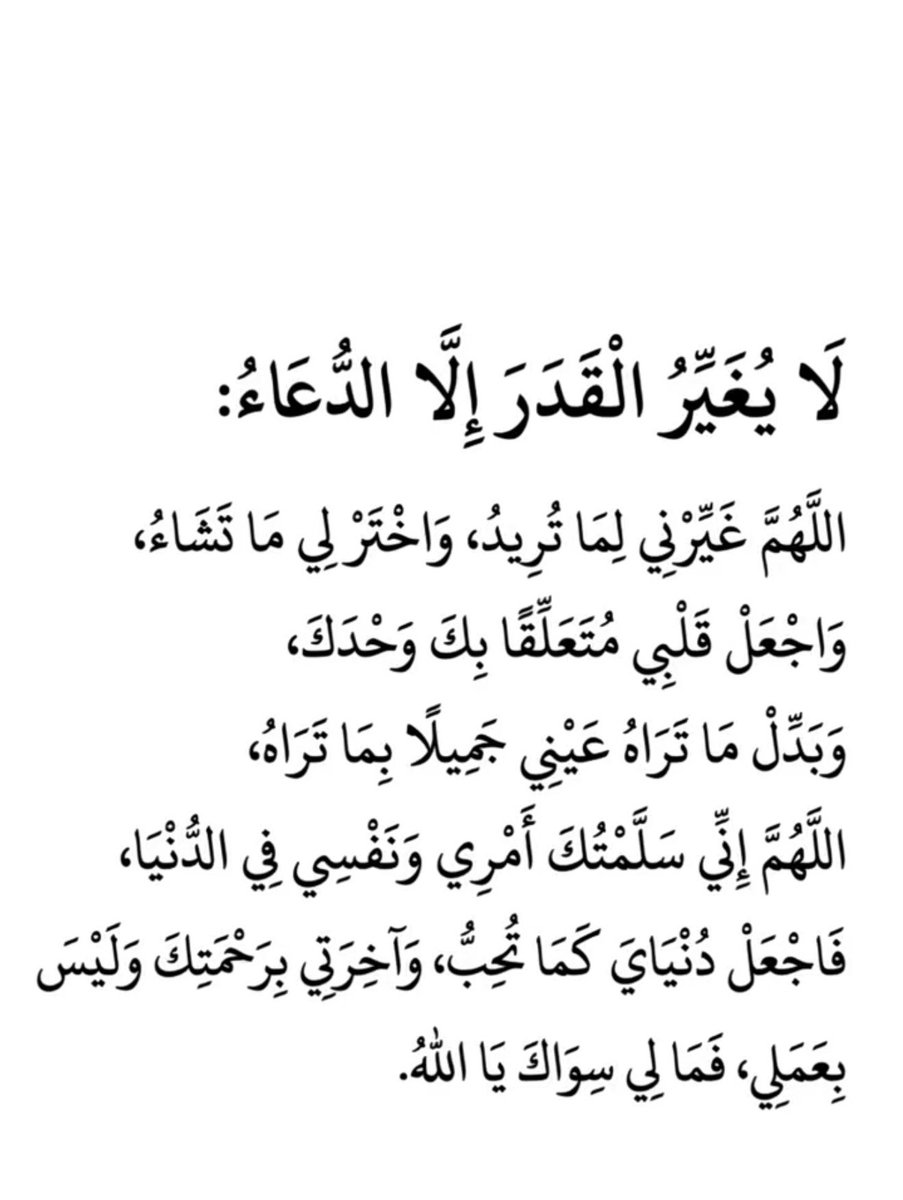 لَا يُغَيِّرُ الْقَدَرَ إِلَّا الدُّعَاءُ:
اللَّهُمَّ غَيِّرْنِي لِمَا تُرِيدُ، وَاخْتَرْ لِي مَا تَشَاءُ،
وَاجْعَلْ قَلْبِي مُتَعَلِّقًا بِكَ وَحْدَكَ،
وَبَدِّلْ مَا تَرَاهُ عَيْنِي جَمِيلًا بِمَا تَرَاهُ،
اللَّهُمَّ إِنِّي سَلَّمْتُكَ أَمْرِي وَنَفْسِي فِي الدُّنْيَا،
فَاجْعَلْ دُنْيَايَ كَمَا تُحِبُّ، وَآخِرَتِي بِرَحْمَتِكَ وَلَيْسَ
بِعَمَلِي، فَمَا لِي سِوَاكَ يَا اللهُ.